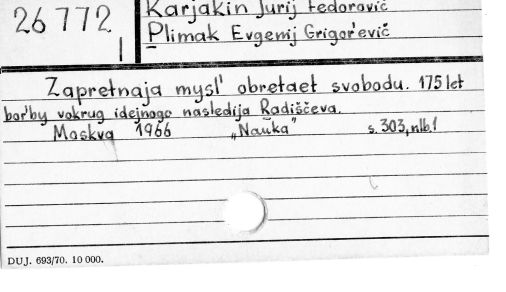 26 772
I
Karjakin Jurij Fedorovič
Plimak Evgenij Grigor'evič
Zapretnaja mysl' obretaet svobodu. 175 let
bor'by vokrug idejnogo nasledija Radiščeva.
Moskva 1966 „Nauka" s. 303, nlb. 1
DUJ. 693/70. 10 000.